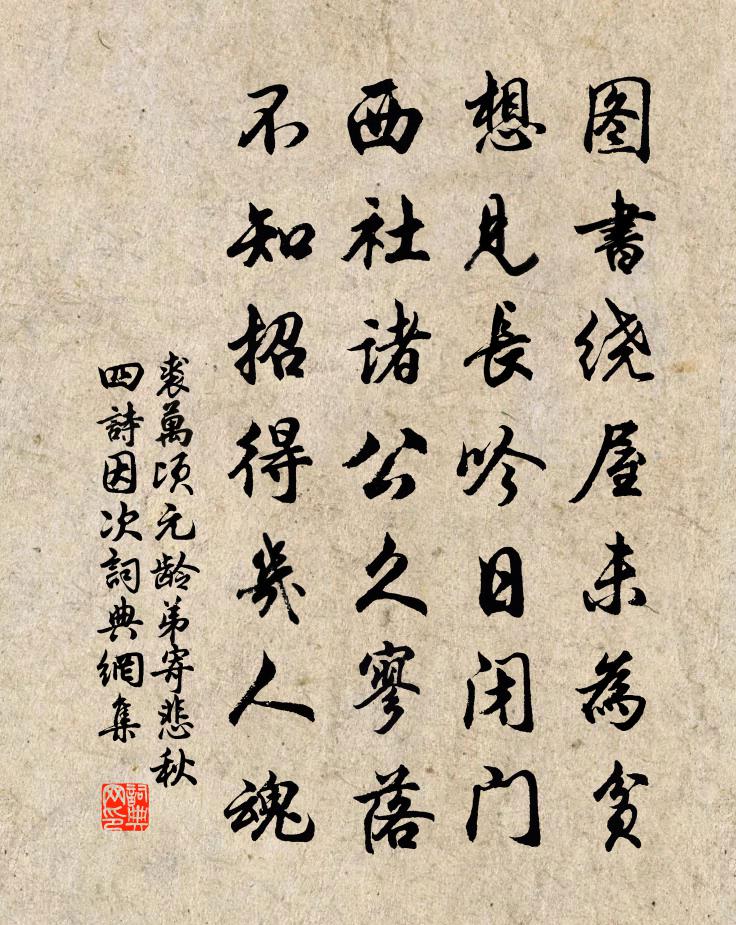 图書绕屋未為貧
想見長吟日闭门
西社诸公久寥落
不知招得幾人魂
裘萬頃元龄弟寄悲秋
四詩因次詞典網集
詞典网印